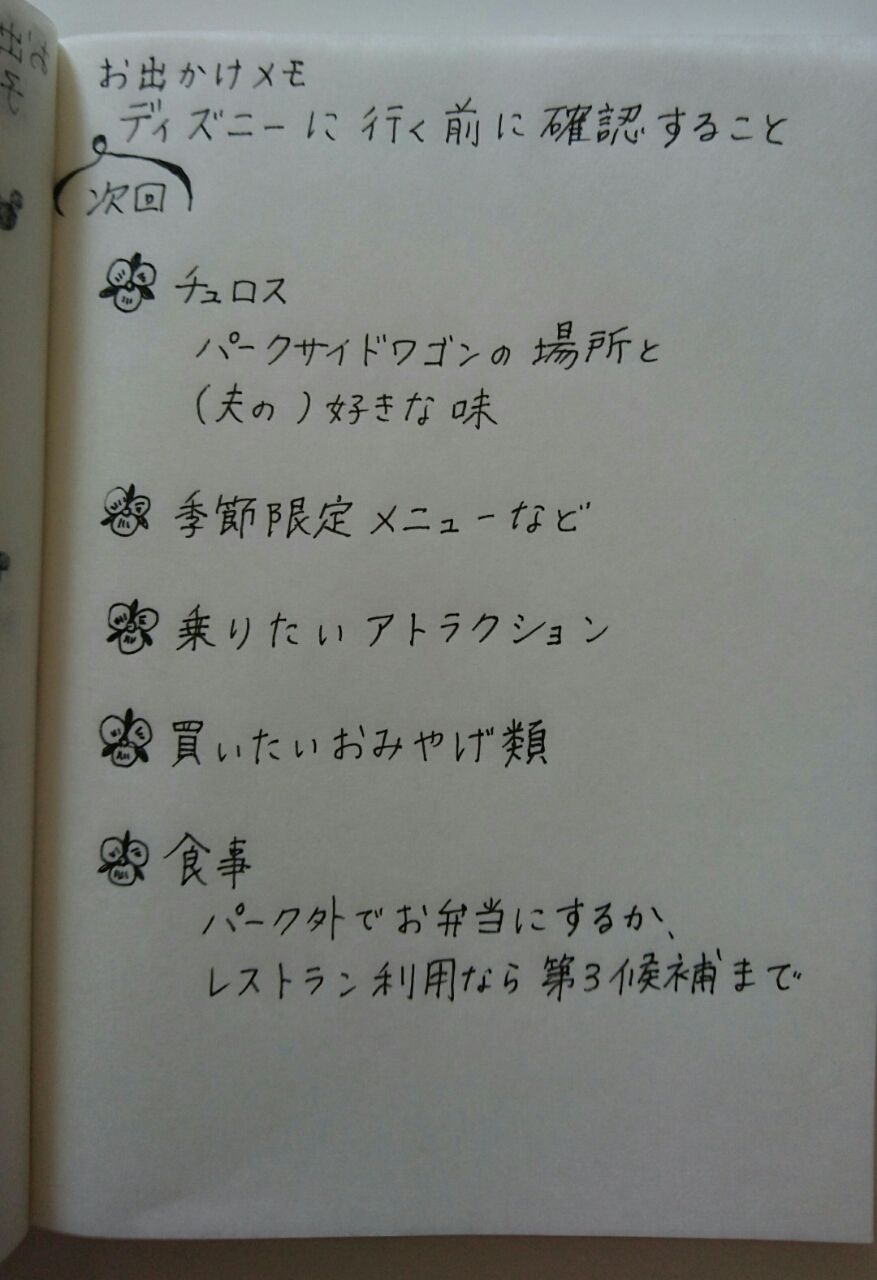 お出かけメモ
ディズニーに行く前に確認すること
次回
チュロス
パークサイドワゴンの場所と
(夫の)好きな味
季節限定メニューなど
乗りたいアトラクション
買いたいおみやげ類
食事
パーク外でお弁当にするか、
レストラン利用なら第3候補まで